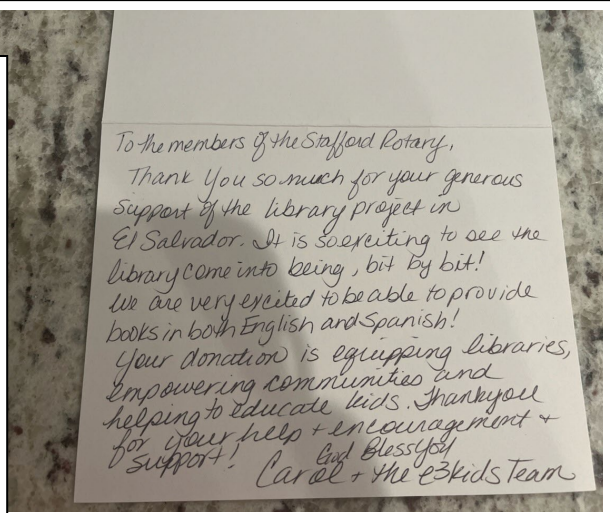 To the members of the Stafford Rotary,
Thank you so much for your generous
support of the library project in
El Salvador. It is so exciting to see the
library come into being, bit by bit!
We are very excited to be able to provide
books in both English and Spanish!
Your donation is equipping libraries,
empowering communities and
helping to educate kids. Thank you
for your help + encouragement +
support!
God Bless you
Carol + the e3kids Team